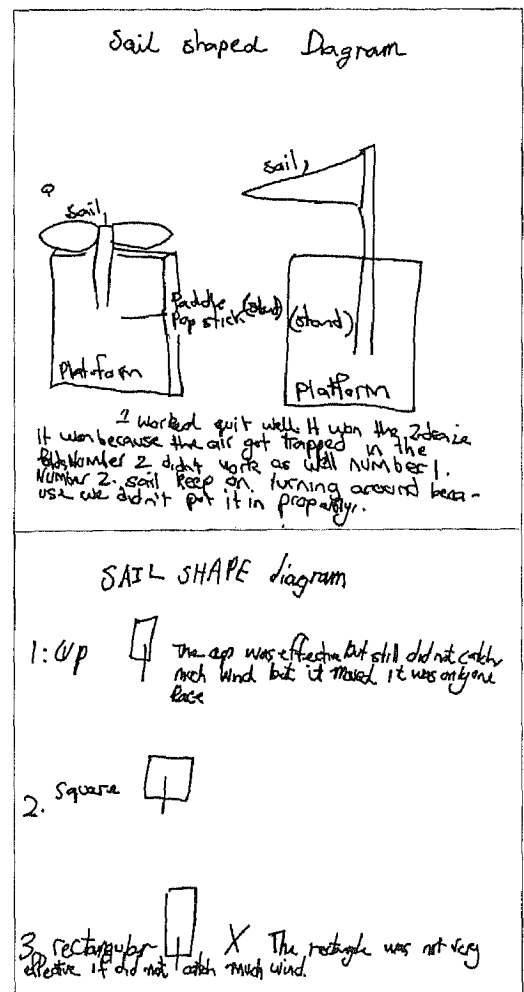 Sail shaped Diagram
sail,
sail,
Paddle
Pop stick (stand)
(stand)
Platoform
Platform
1 worked quit well. It won the 2
It won because the air got trapped in the
Number 2 didn't work as well number 1.
Number 2. sail keep on turning around beca-
use we didn't put it in propably.
SAIL SHAPE diagram
1: cup
The cup was effective but still did not catch
much wind but it moved it was only one
Race
2. Square
3. rectangular X The rectangle was not very
effective it did not catch much wind.